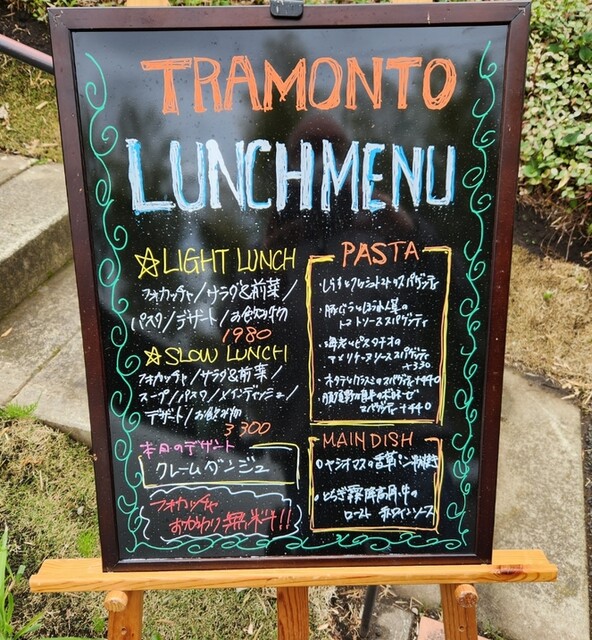 TRAMONTO
LUNCH MENU
☆LIGHT LUNCH
フォカッチャ/サラダ&前菜/
パスタ/デザート/お飲み物
1980
☆SLOW LUNCH
フォカッチャ/サラダ&前菜/
スープ/パスタ/メインディッシュ/
デザート/お飲み物
3300
本日のデザート
クレームダンジュ
フォカッチャ
おかわり無料!!
PASTA
・しらすとフレッシュトマトのスパゲッティ
・豚バラとほうれん草の
トマトソーススパゲッティ
・海老とピスタチオの
アメリケーヌソーススパゲッティ
+330
・ホタテとカラスミのスパゲッティ+440
スパゲッティ+440
MAIN DISH
ヤシオマスの香草パン粉焼き
・とちぎ霧降高原牛の
ロースト 赤ワインソース